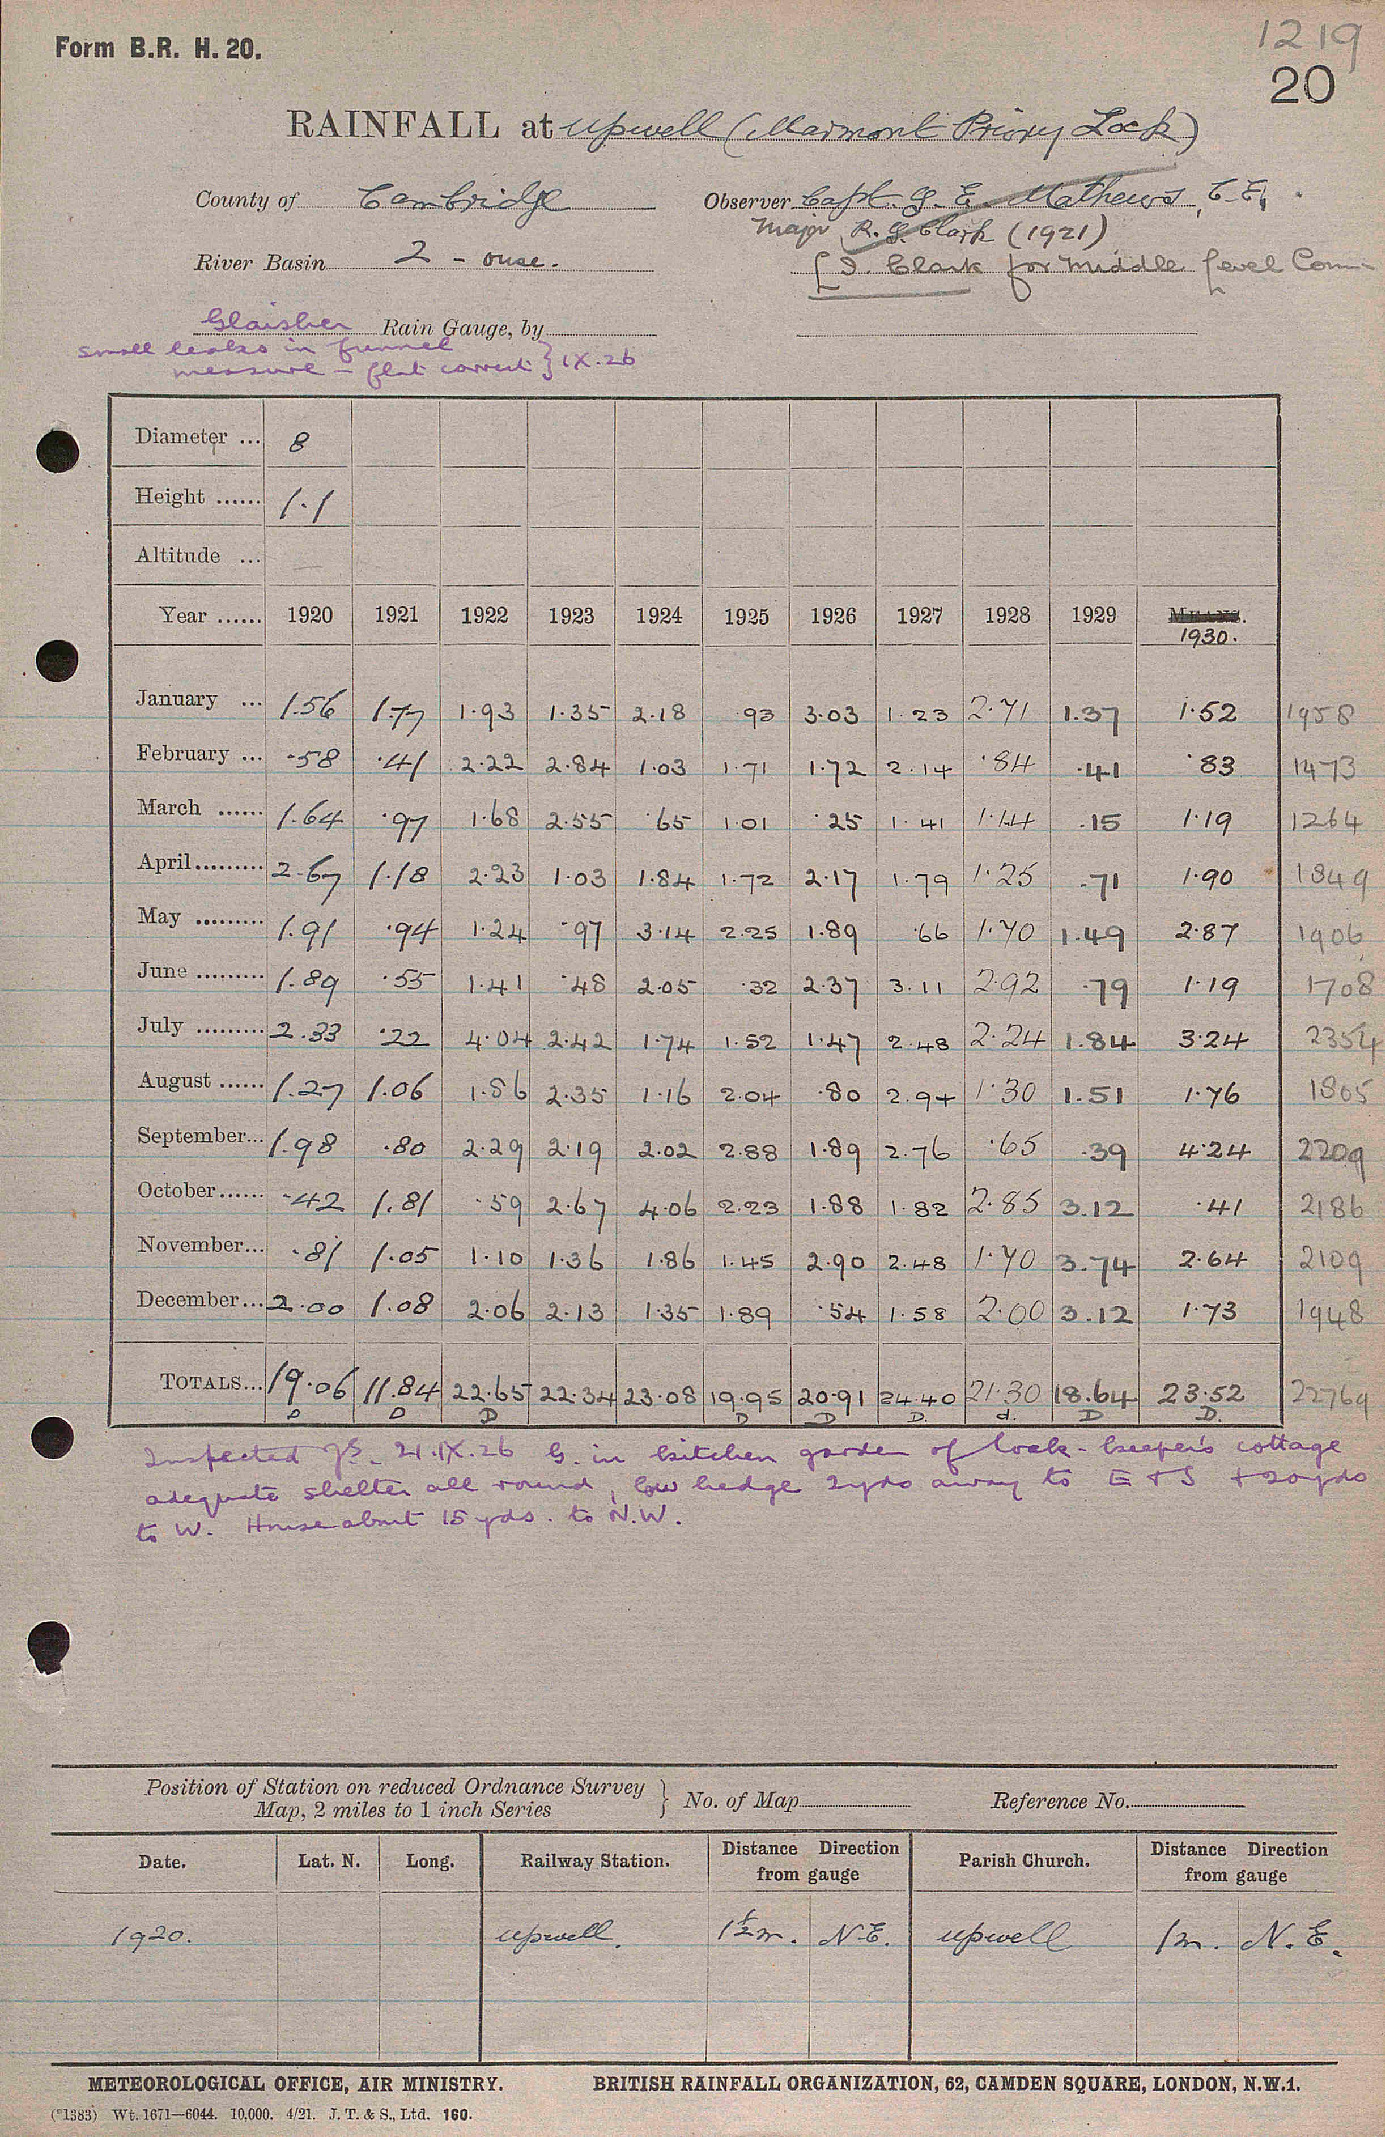 Form B.R. H. 20.
1219
20
RAINFALL at Upwell (Marmont Priory Lock)
County of Cambridge
Observer Capt. G. E. Mathews, C.E.
Major R. G. Clark (1921)
River Basin 2 - Ouse.
[I. Clark for Middle Level Com-
Glaisher Rain Gauge, by
small leaks in funnel
measure - flat correct } IX.26
Diameter ... 8
Height ...... 1.1
Altitude ...
Year ...... 1920 1921 1922 1923 1924 1925 1926 1927 1928 1929 MEANS.
1930.
January ... 1.56 1.77 1.93 1.35 2.18 .93 3.03 1.23 2.71 1.37 1.52 1958
February ... .58 .41 2.22 2.84 1.03 1.71 1.72 2.14 .84 .41 .83 1473
March ...... 1.64 .97 1.68 2.55 .65 1.01 .25 1.41 1.14 .15 1.19 1264
April ......... 2.67 1.18 2.23 1.03 1.84 1.72 2.17 1.79 1.25 .71 1.90 1849
May ......... 1.91 .94 1.24 .97 3.14 2.25 1.89 .66 1.70 1.49 2.87 1906
June ......... 1.89 .55 1.41 .48 2.05 .32 2.37 3.11 2.92 .79 1.19 1708
July ......... 2.33 .22 4.04 2.42 1.74 1.52 1.47 2.48 2.24 1.84 3.24 2354
August ...... 1.27 1.06 1.86 2.35 1.16 2.04 .80 2.94 1.30 1.51 1.76 1805
September... 1.98 .80 2.29 2.19 2.02 2.88 1.89 2.76 .65 .39 4.24 2209
October...... .42 1.81 .59 2.67 4.06 2.23 1.88 1.82 2.85 3.12 .41 2186
November... .81 1.05 1.10 1.36 1.86 1.45 2.90 2.48 1.70 3.74 2.64 2109
December... 2.00 1.08 2.06 2.13 1.35 1.89 .54 1.58 2.00 3.12 1.73 1948
TOTALS... 19.06 11.84 22.65 22.34 23.08 19.95 20.91 24.40 21.30 18.64 23.52 22769
D D D D D D. d. D D.
Inspected 21.IX.26 G. in kitchen garden of lock-keeper's cottage
adequate shelter all round, low hedge 2yds away to E + S + 20yds
to W. House about 15 yds. to N.W.
Position of Station on reduced Ordnance Survey
Map, 2 miles to 1 inch Series } No. of Map Reference No.
Date. Lat. N. Long. Railway Station. Distance Direction from gauge Parish Church. Distance Direction from gauge
1920. Upwell. 1½m. N.E. Upwell 1m. N.E.
METEOROLOGICAL OFFICE, AIR MINISTRY. BRITISH RAINFALL ORGANIZATION, 62, CAMDEN SQUARE, LONDON, N.W.1.
(*1383) Wt. 1671—6044. 10,000. 4/21. J. T. & S., Ltd. 160.